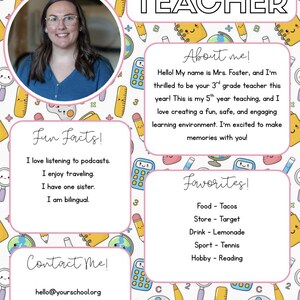 TEACHER
About me!
Hello! My name is Mrs. Foster, and I'm
thrilled to be your 3rd grade teacher this
year! This is my 5th year teaching, and I
love creating a fun, safe, and engaging
learning environment. I'm excited to make
memories with you!
Fun Facts!
I love listening to podcasts.
I enjoy traveling.
I have one sister.
I am bilingual.
Favorites!
Food - Tacos
Store - Target
Drink - Lemonade
Sport - Tennis
Hobby - Reading
Contact Me!
hello@yourschool.org